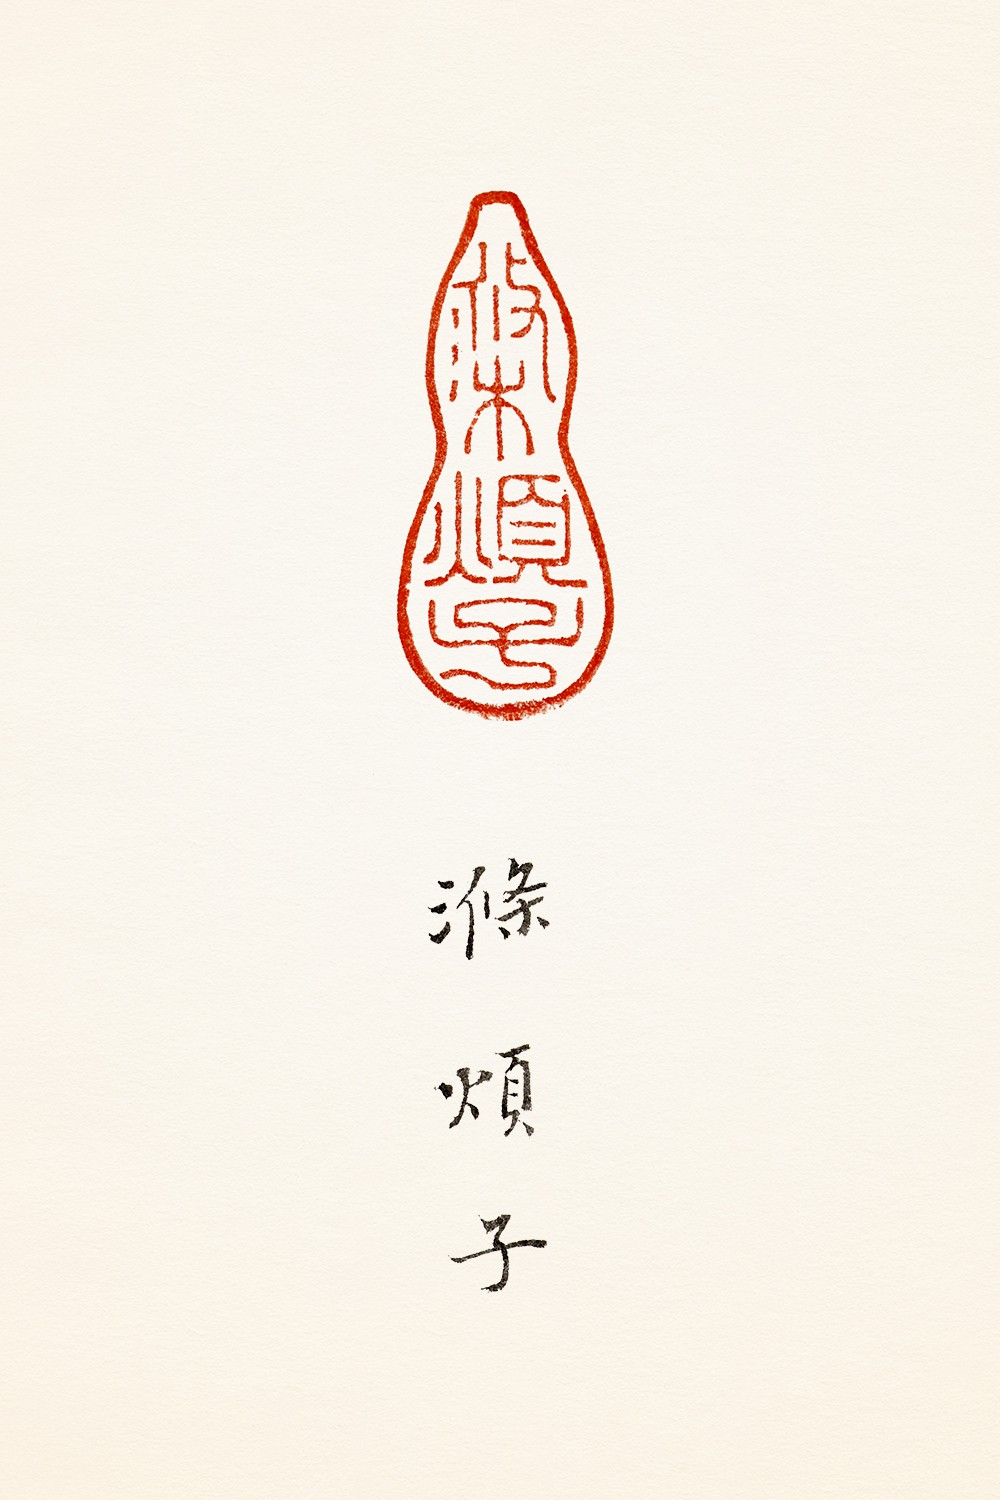 滌煩子
滌煩子